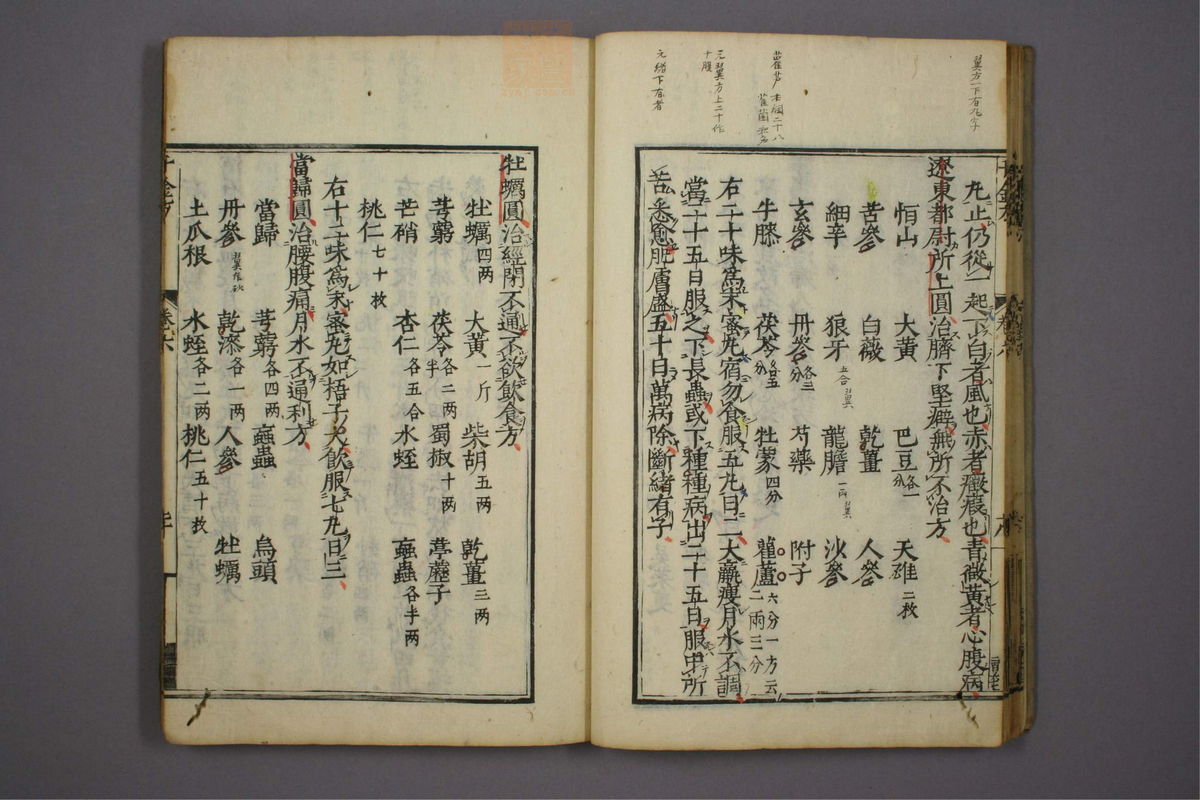 翼方一下有九字
雚芦 本綱二十八
雚菌
元翼方上二十作
十服
元緒下有者
丸止仍從一起下白者風也赤者癥瘕也青微黃者心腹病
遼東都尉所上圓治臍下堅癖無所不治方
恒山 大黃 巴豆各一分 天雄二枚
苦參 白薇 乾薑 人參
細辛 狼牙 龍膽 沙參
五合翼 一兩翼
玄參 丹參各三分 芍藥 附子
牛膝 茯苓各五分 牡蒙四分 雚蘆六分一方云二兩三分
右二十味爲末蜜丸宿勿食服五丸日三大羸瘦月水不調
當二十五日服之下長蟲或下種種病出二十五日服中所
苦悉愈肥膚盛五十日萬病除斷緒有子
牡蠣圓治經閉不通不欲飲食方
牡蠣四兩 大黃一斤 柴胡五兩 乾薑三兩
芎藭 茯苓各二兩半 蜀椒十兩 葶藶子
芒硝 杏仁各五合 水蛭 䗪蟲各半兩
桃仁七十枚
右十二味爲末蜜丸如梧子大飲服七丸日三
當歸圓治腰腹痛月水不通利方
當歸 芎藭各四兩 䗪蟲 烏頭
丹參 乾漆各一兩 人參 牡蠣
土瓜根 水蛭各二兩 桃仁五十枚
千金方 卷六